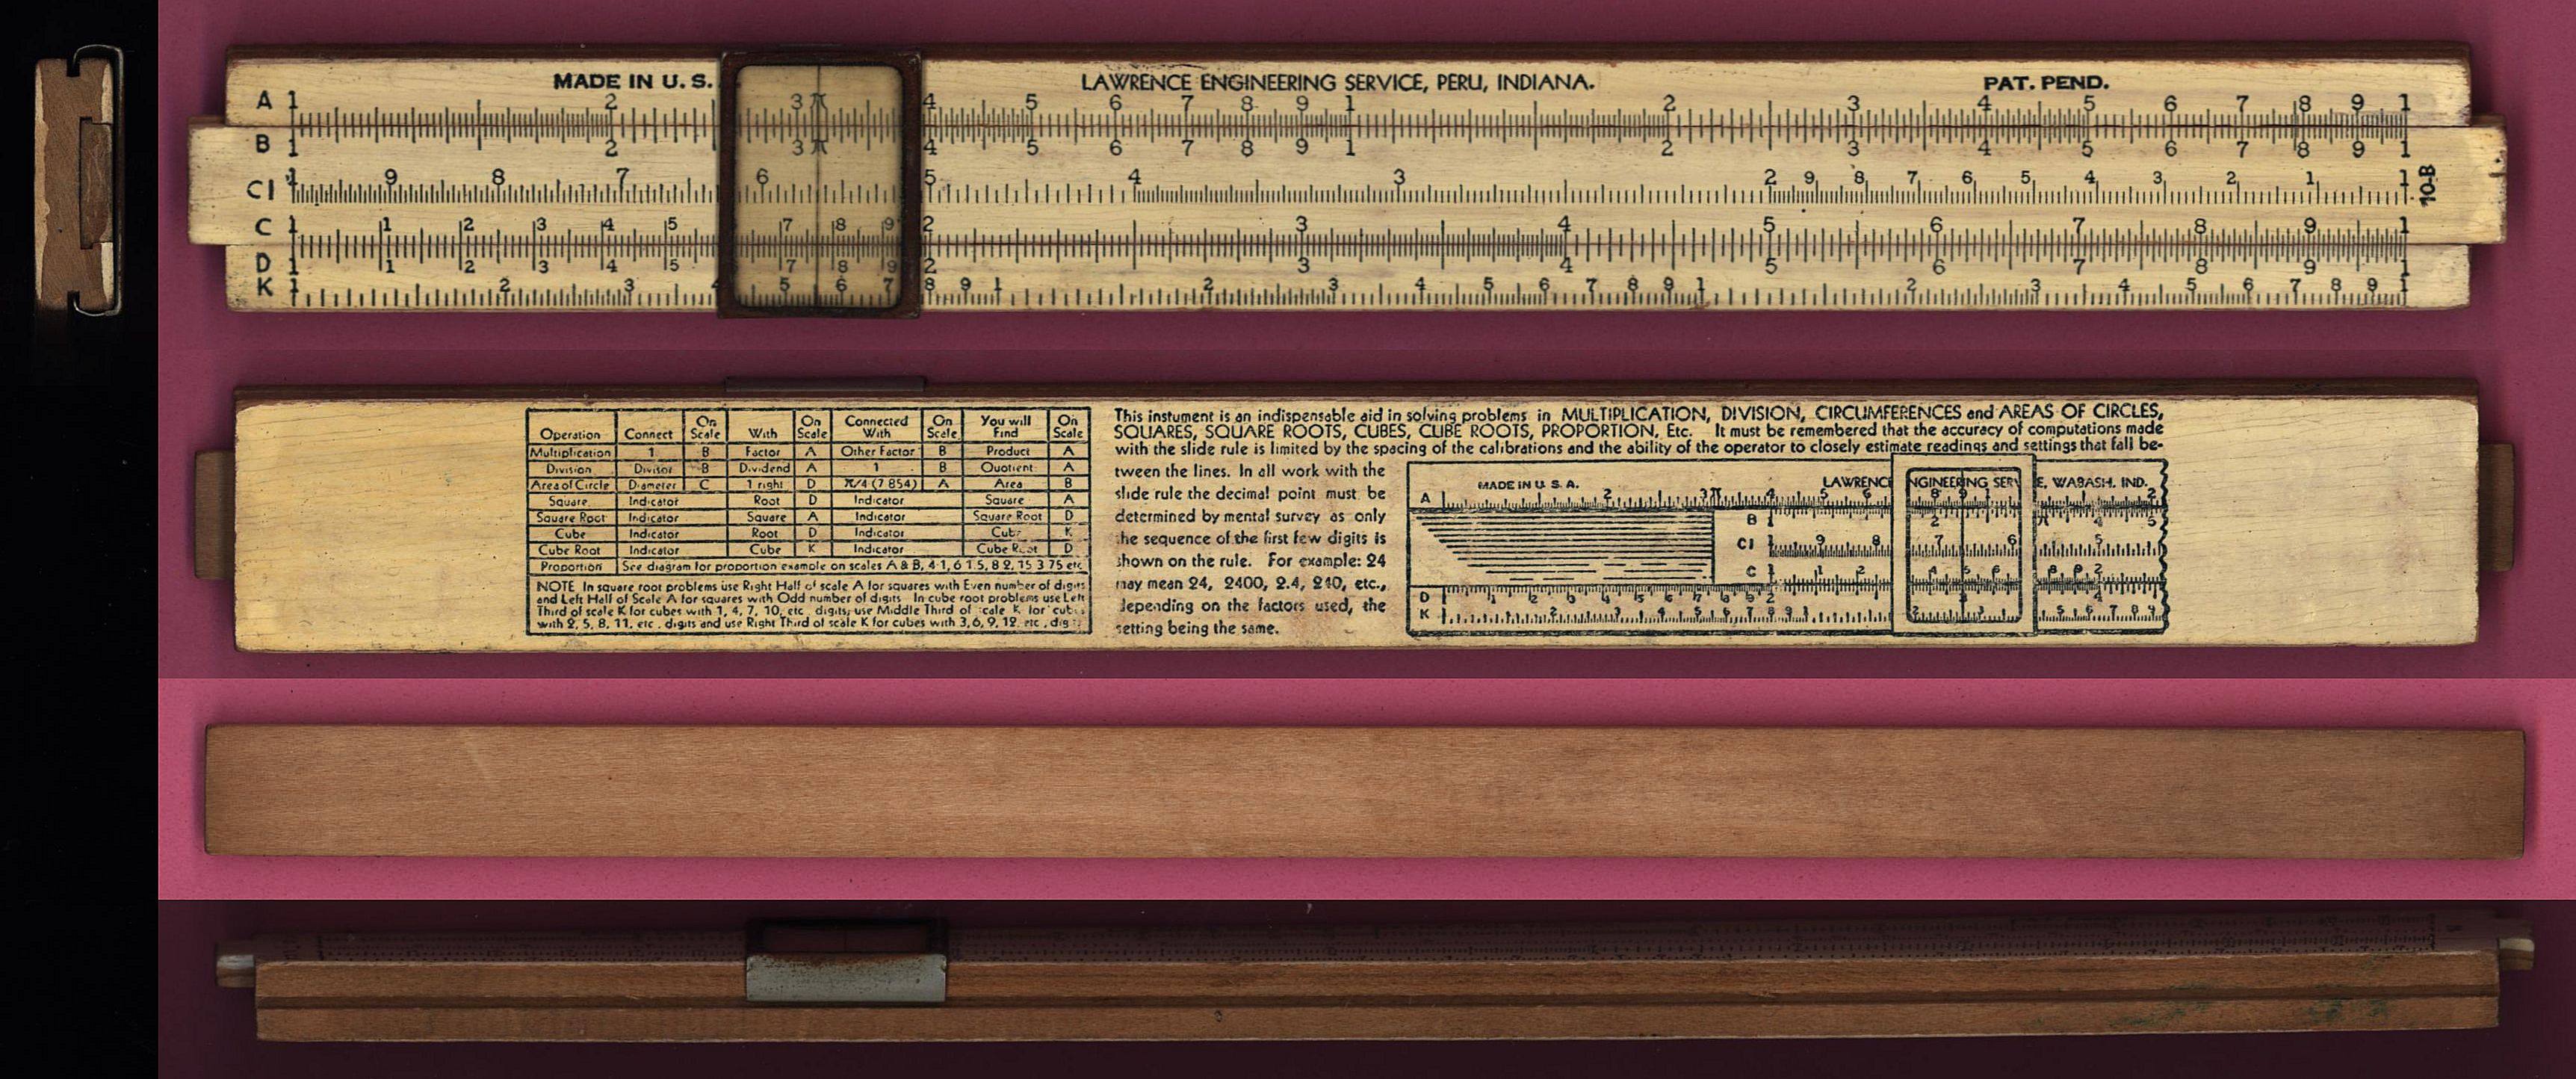 MADE IN U. S. LAWRENCE ENGINEERING SERVICE, PERU, INDIANA. PAT. PEND.
A 1 2 3 π 4 5 6 7 8 9 1 2 3 4 5 6 7 8 9 1
B 1 2 3 π 4 5 6 7 8 9 1 2 3 4 5 6 7 8 9 1
CI 1 9 8 7 6 5 4 3 2 9 8 7 6 5 4 3 2 1 1 10-B
C 1 1 2 3 4 5 7 8 9 2 3 4 5 6 7 8 9 1
D 1 1 2 3 4 5 7 8 9 2 3 4 5 6 7 8 9 1
K 1 2 3 4 5 6 7 8 9 1 2 3 4 5 6 7 8 9 1 2 3 4 5 6 7 8 9 1
Operation Connect On Scale With On Scale Connected With On Scale You will Find On Scale
Multiplication 1 B Factor A Other Factor B Product A
Division Divisor B Dividend A 1 B Quotient A
Area of Circle Diameter C 1 right D π/4 (7854) A Area B
Square Indicator Root D Indicator Square A
Square Root Indicator Square A Indicator Square Root D
Cube Indicator Root D Indicator Cube K
Cube Root Indicator Cube K Indicator Cube Root D
Proportion See diagram for proportion example on scales A & B, 4·1, 6 1.5, 8 2, 15 3 75 etc.
NOTE In square root problems use Right Half of scale A for squares with Even number of digits
and Left Half of Scale A for squares with Odd number of digits In cube root problems use Left
Third of scale K for cubes with 1, 4, 7, 10, etc digits; use Middle Third of scale K for cubes
with 2, 5, 8, 11, etc. digits and use Right Third of scale K for cubes with 3, 6, 9, 12 etc, dig
This instument is an indispensable aid in solving problems in MULTIPLICATION, DIVISION, CIRCUMFERENCES and AREAS OF CIRCLES,
SQUARES, SQUARE ROOTS, CUBES, CUBE ROOTS, PROPORTION, Etc. It must be remembered that the accuracy of computations made
with the slide rule is limited by the spacing of the calibrations and the ability of the operator to closely estimate readings and settings that fall be-
tween the lines. In all work with the
slide rule the decimal point must be
determined by mental survey as only
the sequence of the first few digits is
shown on the rule. For example: 24
may mean 24, 2400, 2.4, 240, etc.,
depending on the factors used, the
setting being the same.
MADE IN U. S. A. LAWRENCE NGINEERING SERV E, WABASH. IND.
A 2 3 π 4 5 6 8 9 1 2
B 1 2 π 4 5
CI 1 9 8 7 6 5
C 1 1 2 4 5 6 8 9 2
D 1 2 3 4 5 6 7 8 9 2 3 4
K 1 2 3 4 5 6 7 8 9 1 2 3 5 6 7 8 9